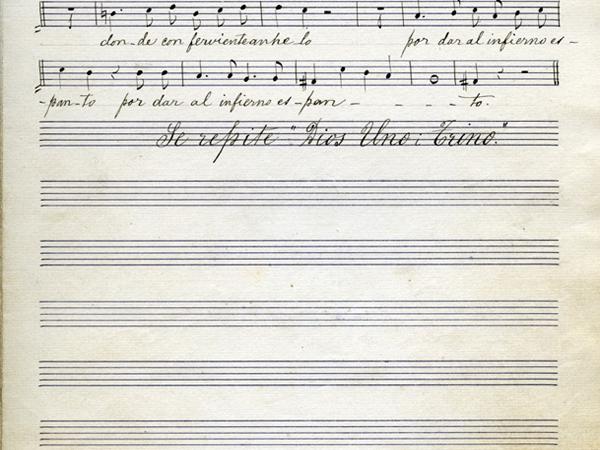 don-de con fervienteanhe lo por dar al infierno es-
-pan-to por dar al infierno es-pan - - - - to.
Se repite "Dios Uno i Trino."